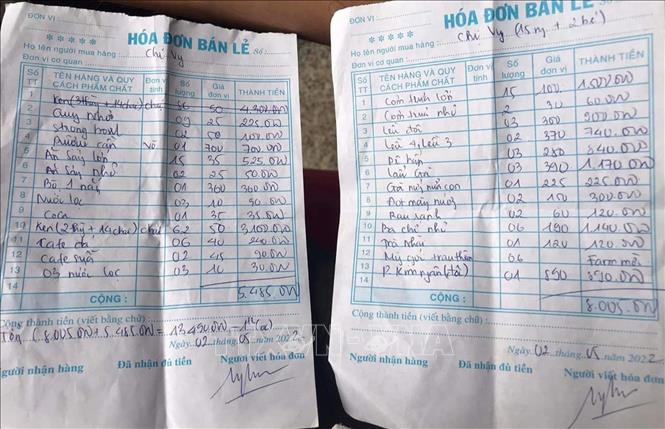 ĐƠN VỊ :
HÓA ĐƠN BÁN LẺ Số :
Họ tên người mua hàng : Chị Vy
Đơn vị cơ quan :
Số TT TÊN HÀNG VÀ QUY CÁCH PHẨM CHẤT Đơn vị tính Số lượng Giá đơn vị THÀNH TIỀN
1
2 09 25 225.000
3 strong bow 02 50 100.000
4 01 700 700.000
5 Ăn sáng lớn 15 35 525.000
6 Ăn sáng nhỏ 02 25 50.000
7 Bò 1 nắng 01 360 360.000
8 Nước lọc 03 10 30.000
9 Coca 01 35 35.000
10 Ken (2 thùng + 14 chai) chai 62 50 3.100.000
11 Cafe đá 06 40 240.000
12 Cafe sữa 02 45 90.000
13 03 nước lọc 03 10 30.000
14
CỘNG : 5.485.000
Cộng thành tiền (viết bằng chữ) :
(8.005.000 + 5.485.000 = 13.490.000
Ngày 02 tháng 05 năm 2022
Người nhận hàng Đã nhận đủ tiền Người viết hóa đơn
ĐƠN VỊ :
HÓA ĐƠN BÁN LẺ Số :
Họ tên người mua hàng : Chị Vy (15 ng + 2 bé)
Đơn vị cơ quan :
Số TT TÊN HÀNG VÀ QUY CÁCH PHẨM CHẤT Đơn vị tính Số lượng Giá đơn vị THÀNH TIỀN
1 15 100 1.500.000
2 2 30 60.000
3 Lều đôi 03 300 900.000
4 Lều 4, Lều 3 02 370 740.000
5 Dê hấp 03 280 840.000
6 Lẩu Gà 03 390 1.170.000
7 01 225 225.000
8 02 150 300.000
9 Rau xanh 02 60 120.000
10 Ba chỉ nhỏ 06 190 1.140.000
11 01 120 120.000
12 06 Farm mời
13 01 890 890.000
14
CỘNG : 8.005.000
Cộng thành tiền (viết bằng chữ) :
Ngày 02 tháng 05 năm 2022
Người nhận hàng Đã nhận đủ tiền Người viết hóa đơn